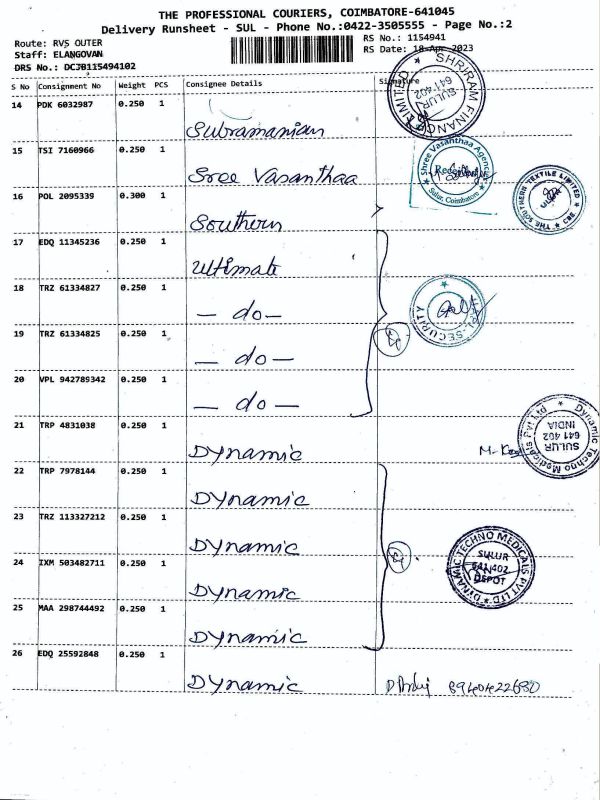 THE PROFESSIONAL COURIERS, COIMBATORE-641045
Delivery Runsheet - SUL - Phone No.:0422-3505555 - Page No.:2
Route: RVS OUTER
RS No.: 1154941
Staff: ELANGOVAN
RS Date: 18-Apr-2023
DRS No.: DCJB115494102
S No Consignment No Weight PCS Consignee Details Signature
14 PDK 6032987 0.250 1
Subramanian
SHRIRAM FINANCE LIMITED
SULUR
641 402
15 TSI 7160966 0.250 1
Sree Vasanthaa
Shree Vasanthaa Agency
Sulur, Coimbatore
16 POL 2095339 0.300 1
Southern
THE SOUTHERN TEXTILE LIMITED ★ CBE ★
17 EDQ 11345236 0.250 1
Ultimate
18 TRZ 61334827 0.250 1
— do —
SECURITY
19 TRZ 61334825 0.250 1
— do —
20 VPL 942789342 0.250 1
— do —
21 TRP 4831038 0.250 1
Dynamic
Dynamic Techno Medicals Pvt Ltd
SULUR
641 402
INDIA
22 TRP 7978144 0.250 1
Dynamic
23 TRZ 113327212 0.250 1
Dynamic
DYNAMIC TECHNO MEDICALS PVT LTD
SULUR
641 402
DEPOT
24 IXM 503482711 0.250 1
Dynamic
25 MAA 298744492 0.250 1
Dynamic
26 EDQ 25592848 0.250 1
Dynamic